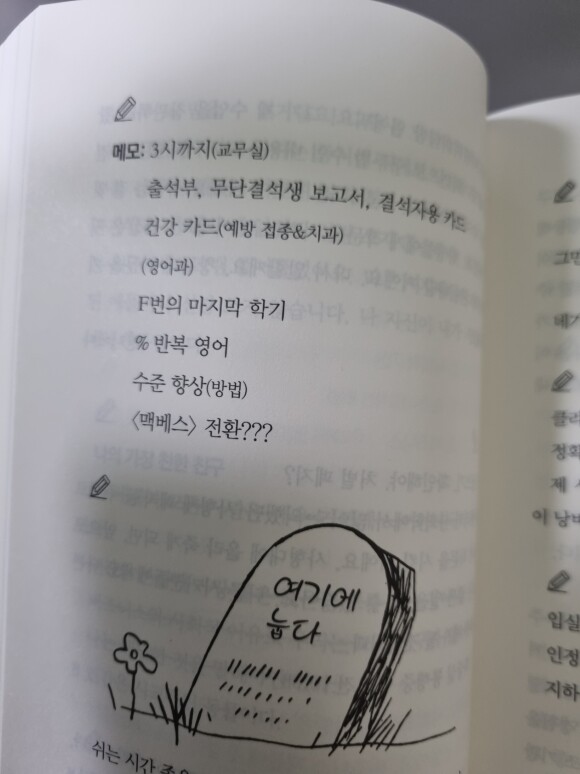 메모: 3시까지(교무실)
출석부, 무단결석생 보고서, 결석자용 카드
건강 카드(예방 접종&치과)
(영어과)
F번의 마지막 학기
% 반복 영어
수준 향상(방법)
〈맥베스〉 전환???
여기에
눕다
쉬는 시간
그만
네가
클리
정확
제
이 낭비
입실
인정
지하